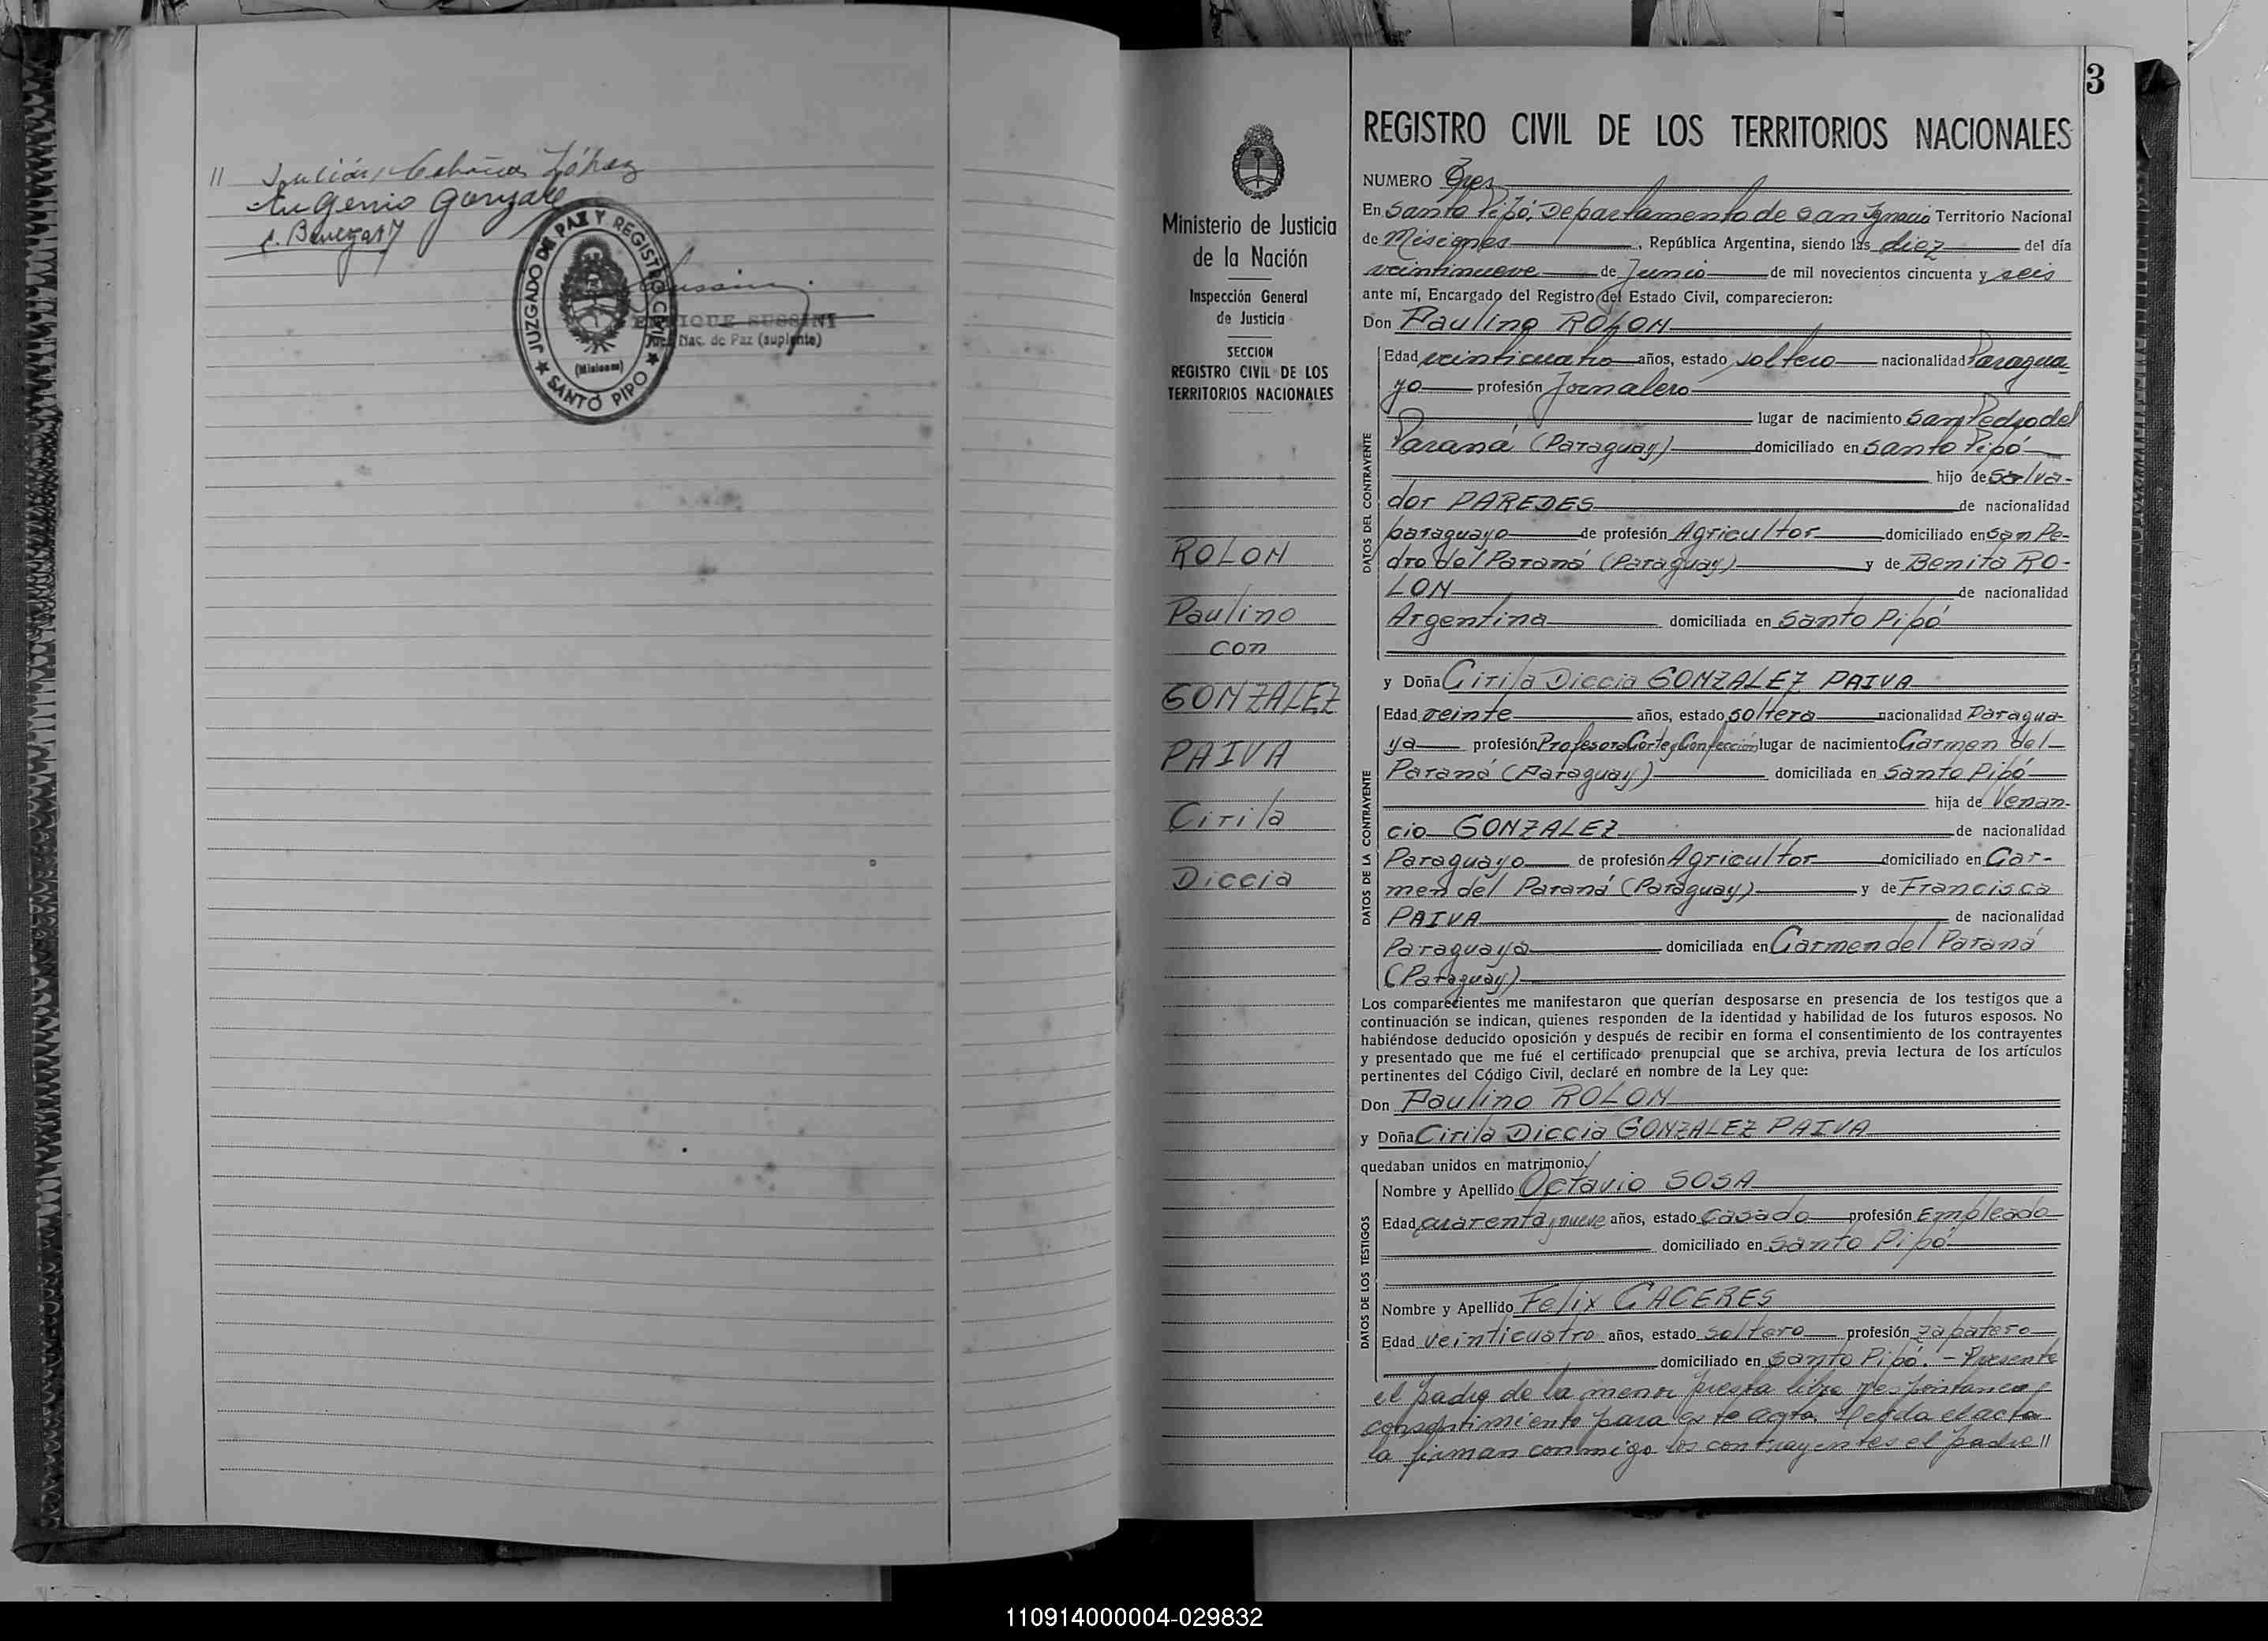 // Julián Cabañas López
Eugenio Gonzale
JUZGADO DE PAZ Y REGISTRO CIVIL
(Misiones)
★ SANTO PIPO ★
ENRIQUE SUSSINI
Juez Nac. de Paz (suplente)
3
Ministerio de Justicia
de la Nación
Inspección General
de Justicia
SECCION
REGISTRO CIVIL DE LOS
TERRITORIOS NACIONALES
ROLON
Paulino
con
GONZALEZ
PAIVA
Cirila
Diccia
REGISTRO CIVIL DE LOS TERRITORIOS NACIONALES
NUMERO Tres
En Santo Pipó, Departamento de San Ignacio Territorio Nacional
de Misiones, República Argentina, siendo las diez del día
veintinueve de Junio de mil novecientos cincuenta y seis
ante mí, Encargado del Registro del Estado Civil, comparecieron:
Don Paulino ROLON
DATOS DEL CONTRAYENTE
Edad veinticuatro años, estado soltero nacionalidad Paragua-
yo profesión Jornalero
lugar de nacimiento San Pedro del
Paraná (Paraguay) domiciliado en Santo Pipó
hijo de Salva-
dor PAREDES de nacionalidad
paraguayo de profesión Agricultor domiciliado en San Pe-
dro del Paraná (Paraguay) y de Benita RO-
LON de nacionalidad
Argentina domiciliada en Santo Pipó
y Doña Cirila Diccia GONZALEZ PAIVA
DATOS DE LA CONTRAYENTE
Edad veinte años, estado soltera nacionalidad Paragua-
ya profesión Profesora Corte y Confección lugar de nacimiento Carmen del
Paraná (Paraguay) domiciliada en Santo Pipó
hija de Venan-
cio GONZALEZ de nacionalidad
Paraguayo de profesión Agricultor domiciliado en Car-
men del Paraná (Paraguay) y de Francisca
PAIVA de nacionalidad
Paraguaya domiciliada en Carmen del Paraná
(Paraguay)
Los comparecientes me manifestaron que querían desposarse en presencia de los testigos que a
continuación se indican, quienes responden de la identidad y habilidad de los futuros esposos. No
habiéndose deducido oposición y después de recibir en forma el consentimiento de los contrayentes
y presentado que me fué el certificado prenupcial que se archiva, previa lectura de los artículos
pertinentes del Código Civil, declaré en nombre de la Ley que:
Don Paulino ROLON
y Doña Cirila Diccia GONZALEZ PAIVA
quedaban unidos en matrimonio.
DATOS DE LOS TESTIGOS
Nombre y Apellido Octavio SOSA
Edad cuarenta y nueve años, estado Casado profesión Empleado
domiciliado en Santo Pipó
Nombre y Apellido Felix CACERES
Edad veinticuatro años, estado soltero profesión zapatero
domiciliado en Santo Pipó.- Presente
el padre de la menor presta libre y espontaneo
consentimiento para este acto. Leida el acta
la firman conmigo los contrayentes el padre //
110914000004-029832